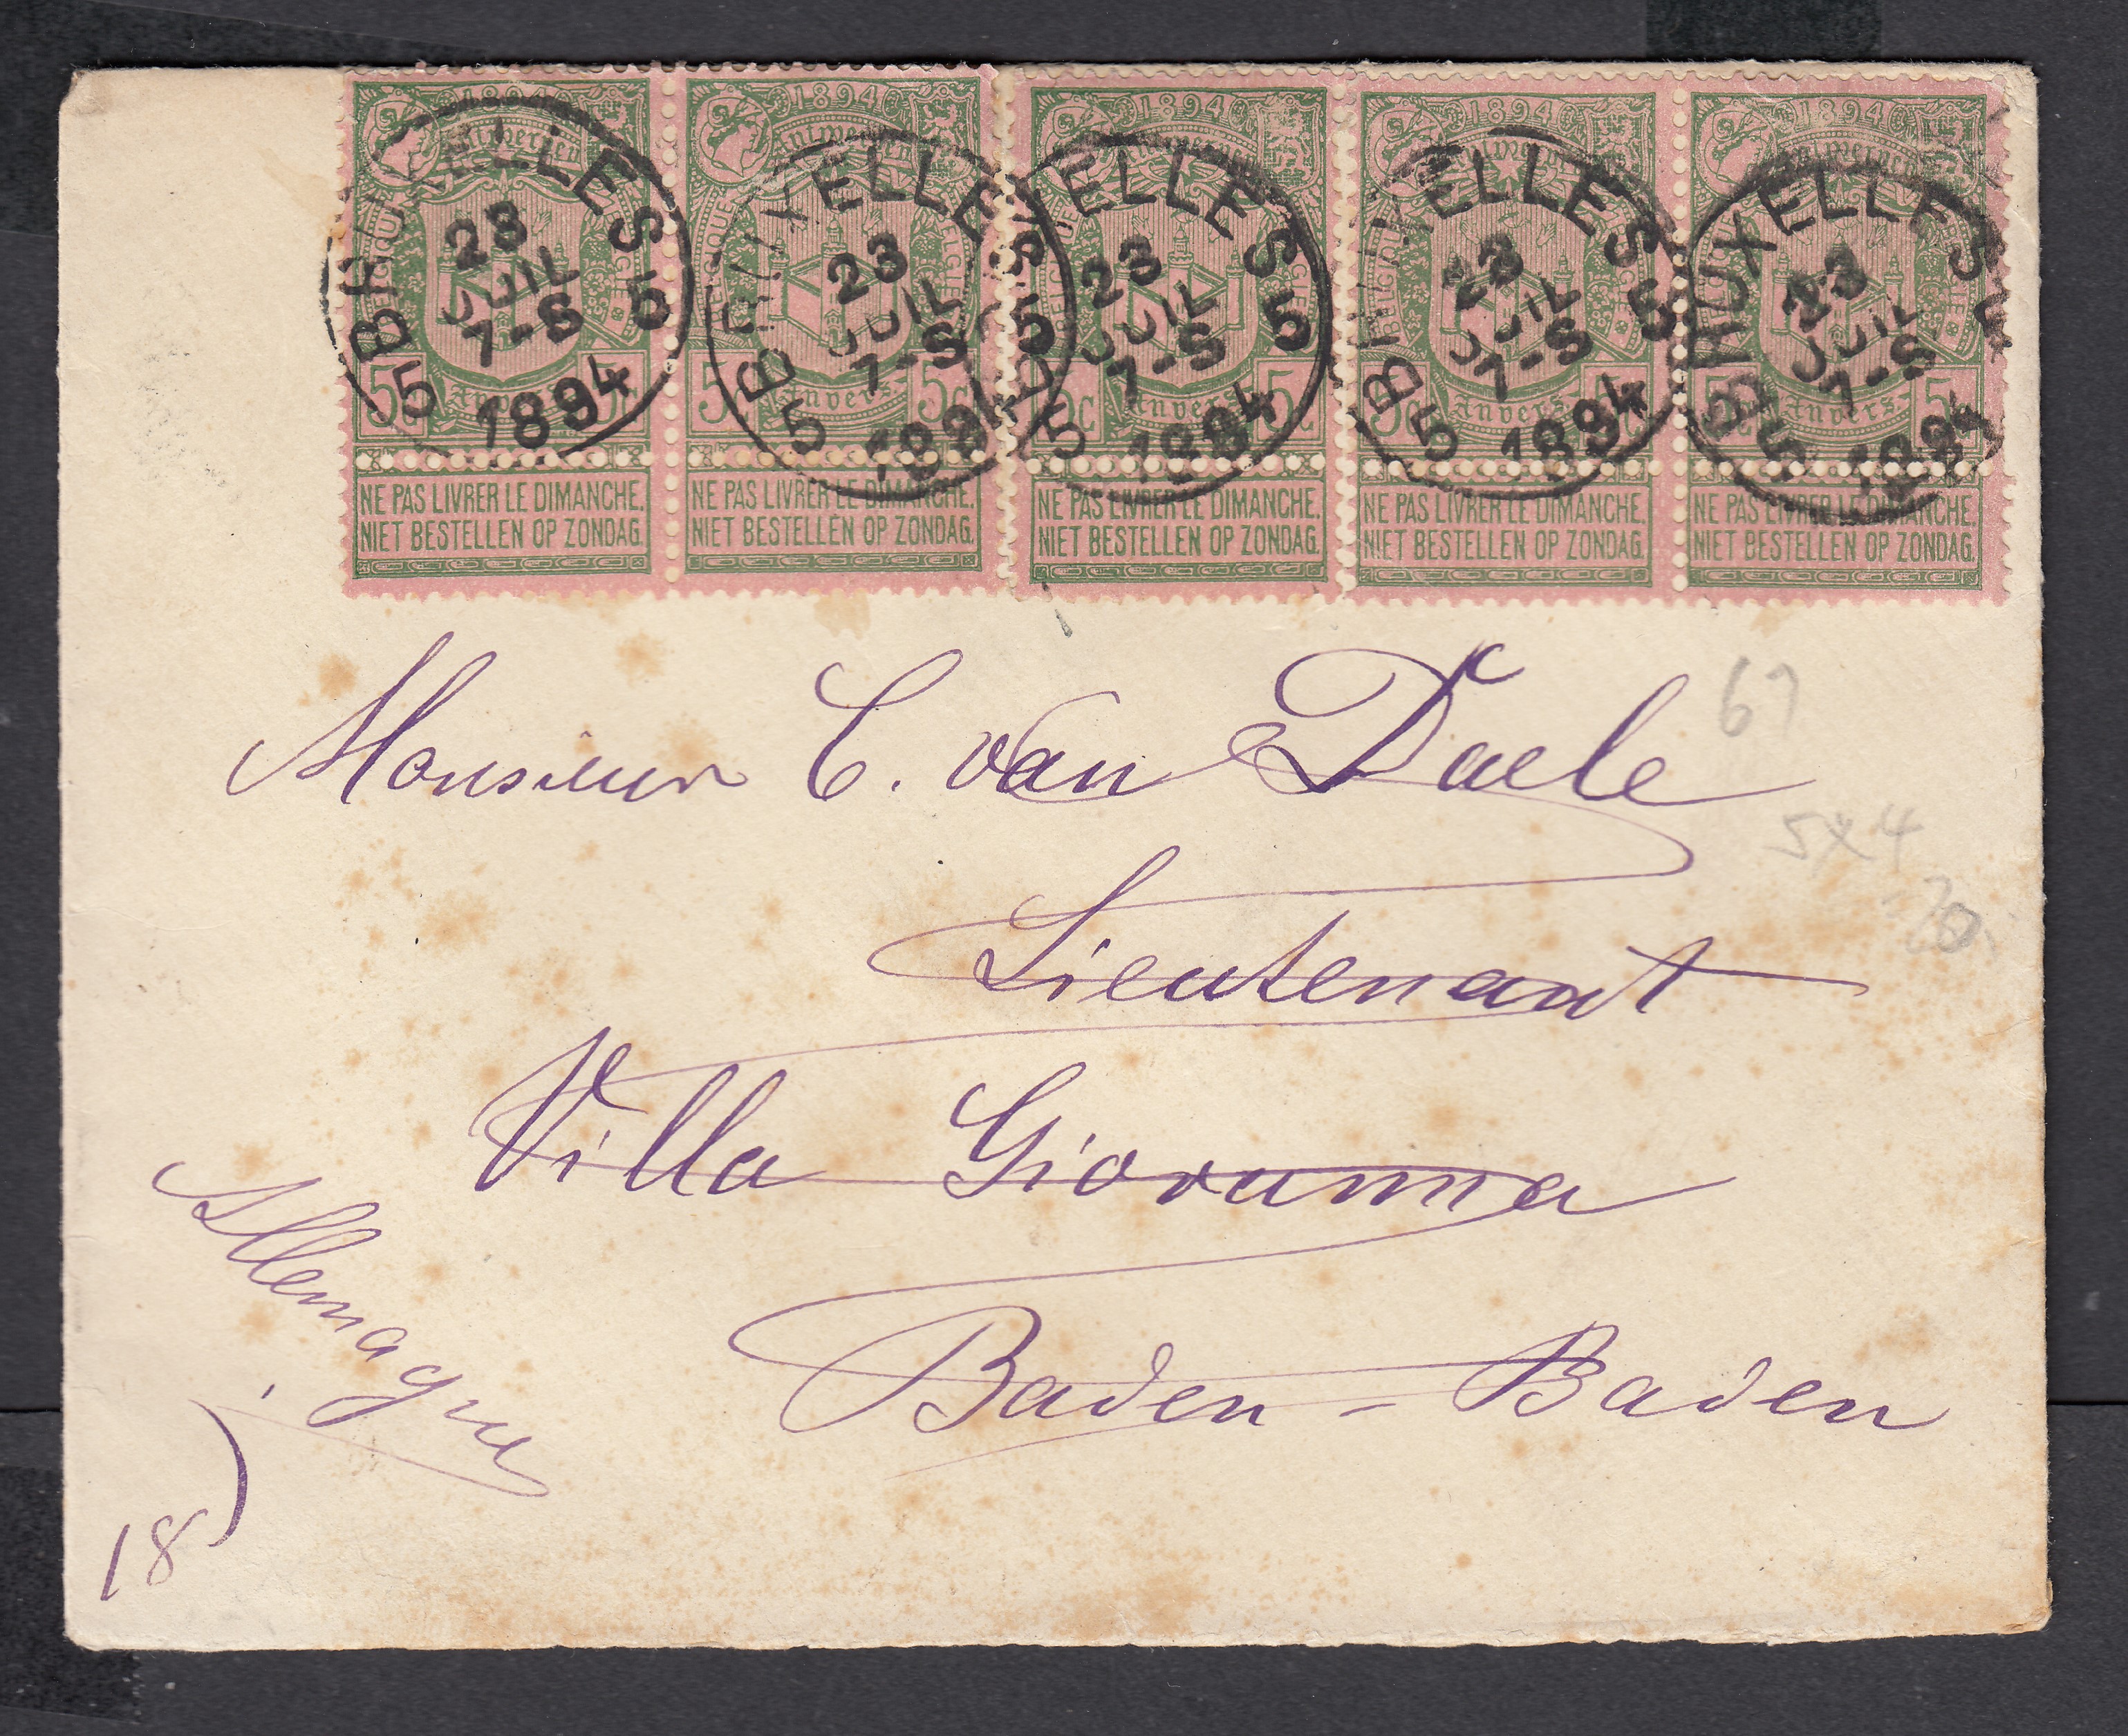 1894 1894 1894 1894 1894
Antwerpen Antwerpen Antwerpen Antwerpen Antwerpen
BRUXELLES BRUXELLES BRUXELLES BRUXELLES BRUXELLES
23 23 23 23 23
JUIL JUIL JUIL JUIL JUIL
7-S 7-S 7-S 7-S 7-S
5 5 5 5 5 5 5 5 5
1894 1894 1894 1894 1894
5c 5c 5c 5c 5c
Anvers Anvers Anvers Anvers Anvers
NE PAS LIVRER LE DIMANCHE. NE PAS LIVRER LE DIMANCHE. NE PAS LIVRER LE DIMANCHE. NE PAS LIVRER LE DIMANCHE. NE PAS LIVRER LE DIMANCHE.
NIET BESTELLEN OP ZONDAG. NIET BESTELLEN OP ZONDAG. NIET BESTELLEN OP ZONDAG. NIET BESTELLEN OP ZONDAG. NIET BESTELLEN OP ZONDAG.
Monsieur C. van Daele
67
5x4
20
Lieutenant
Villa Giovanna
Baden-Baden
Allemagne
18)